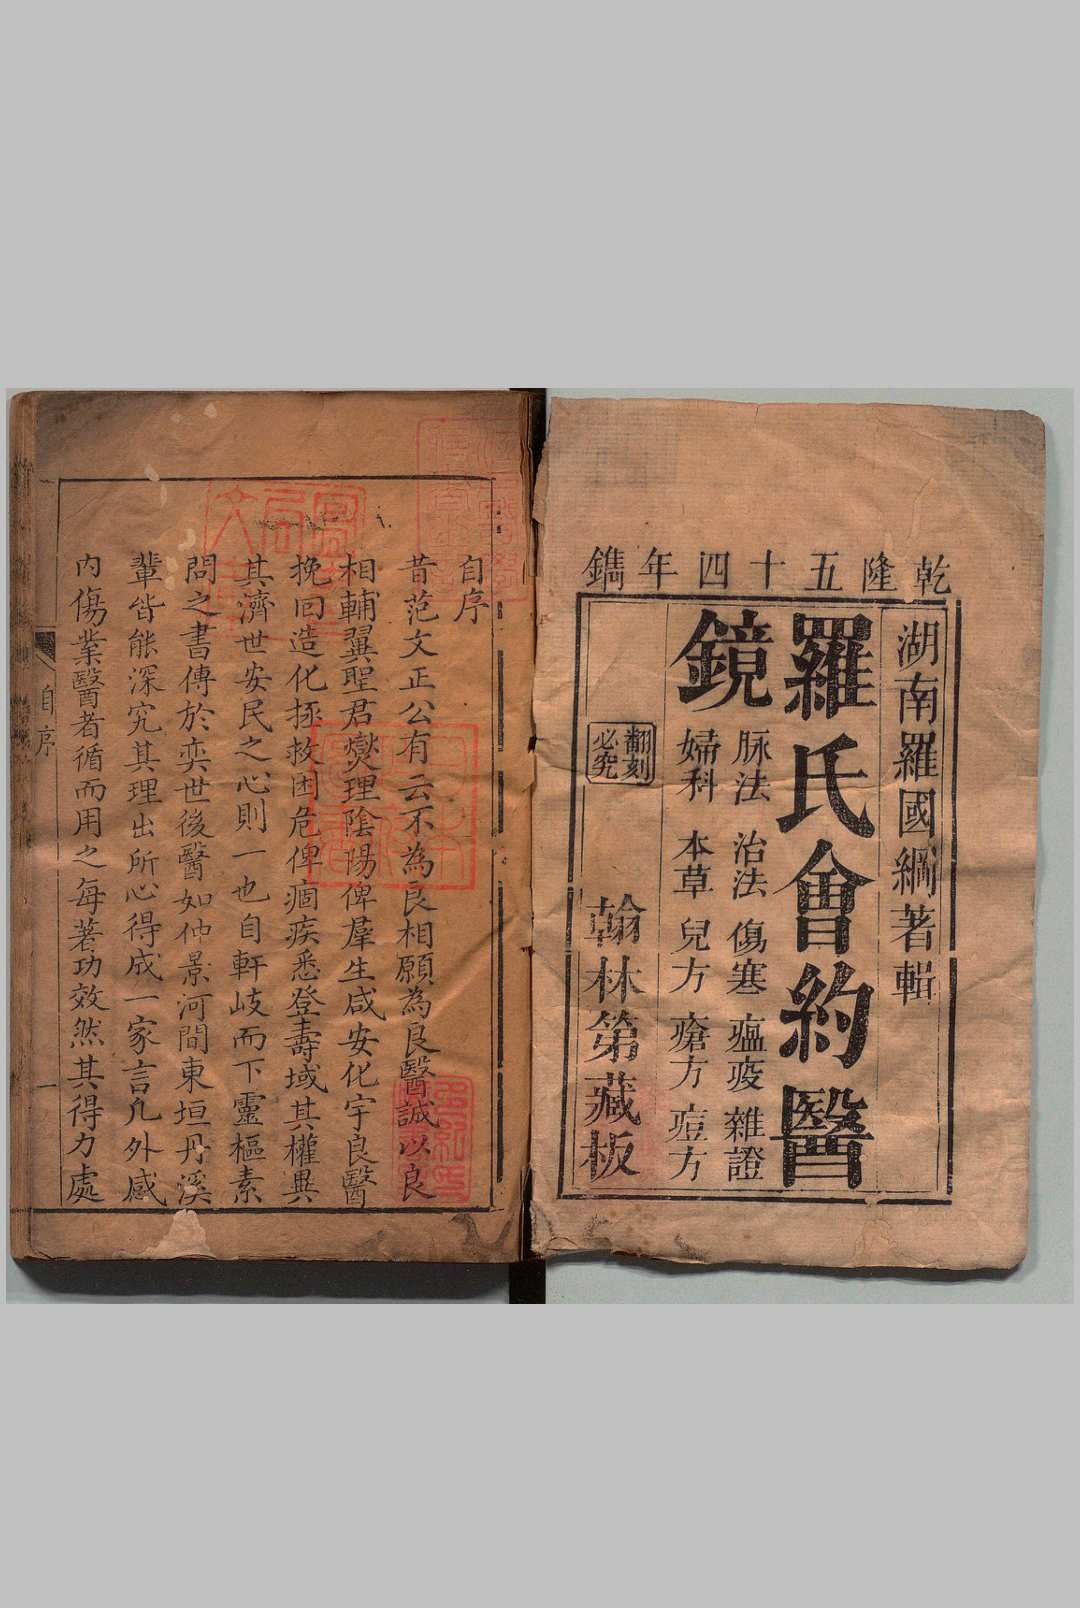 乾隆五十四年鐫
湖南羅國綱著輯
羅氏會約醫
鏡
脉法 治法 傷寒 瘟疫 雜證
婦科 本草 兒方 瘡方 痘方
翻刻
必究
翰林第藏板
自序
昔范文正公有云不為良相願為良醫誠以良
相輔翼聖君燮理陰陽俾羣生咸安化宇良醫
挽回造化拯救困危俾痼疾悉登壽域其權異
其濟世安民之心則一也自軒岐而下靈樞素
問之書傳於奕世後醫如仲景河間東垣丹溪
輩皆能深究其理出所心得成一家言凡外感
內傷業醫者循而用之每著功效然其得力處
自序
一